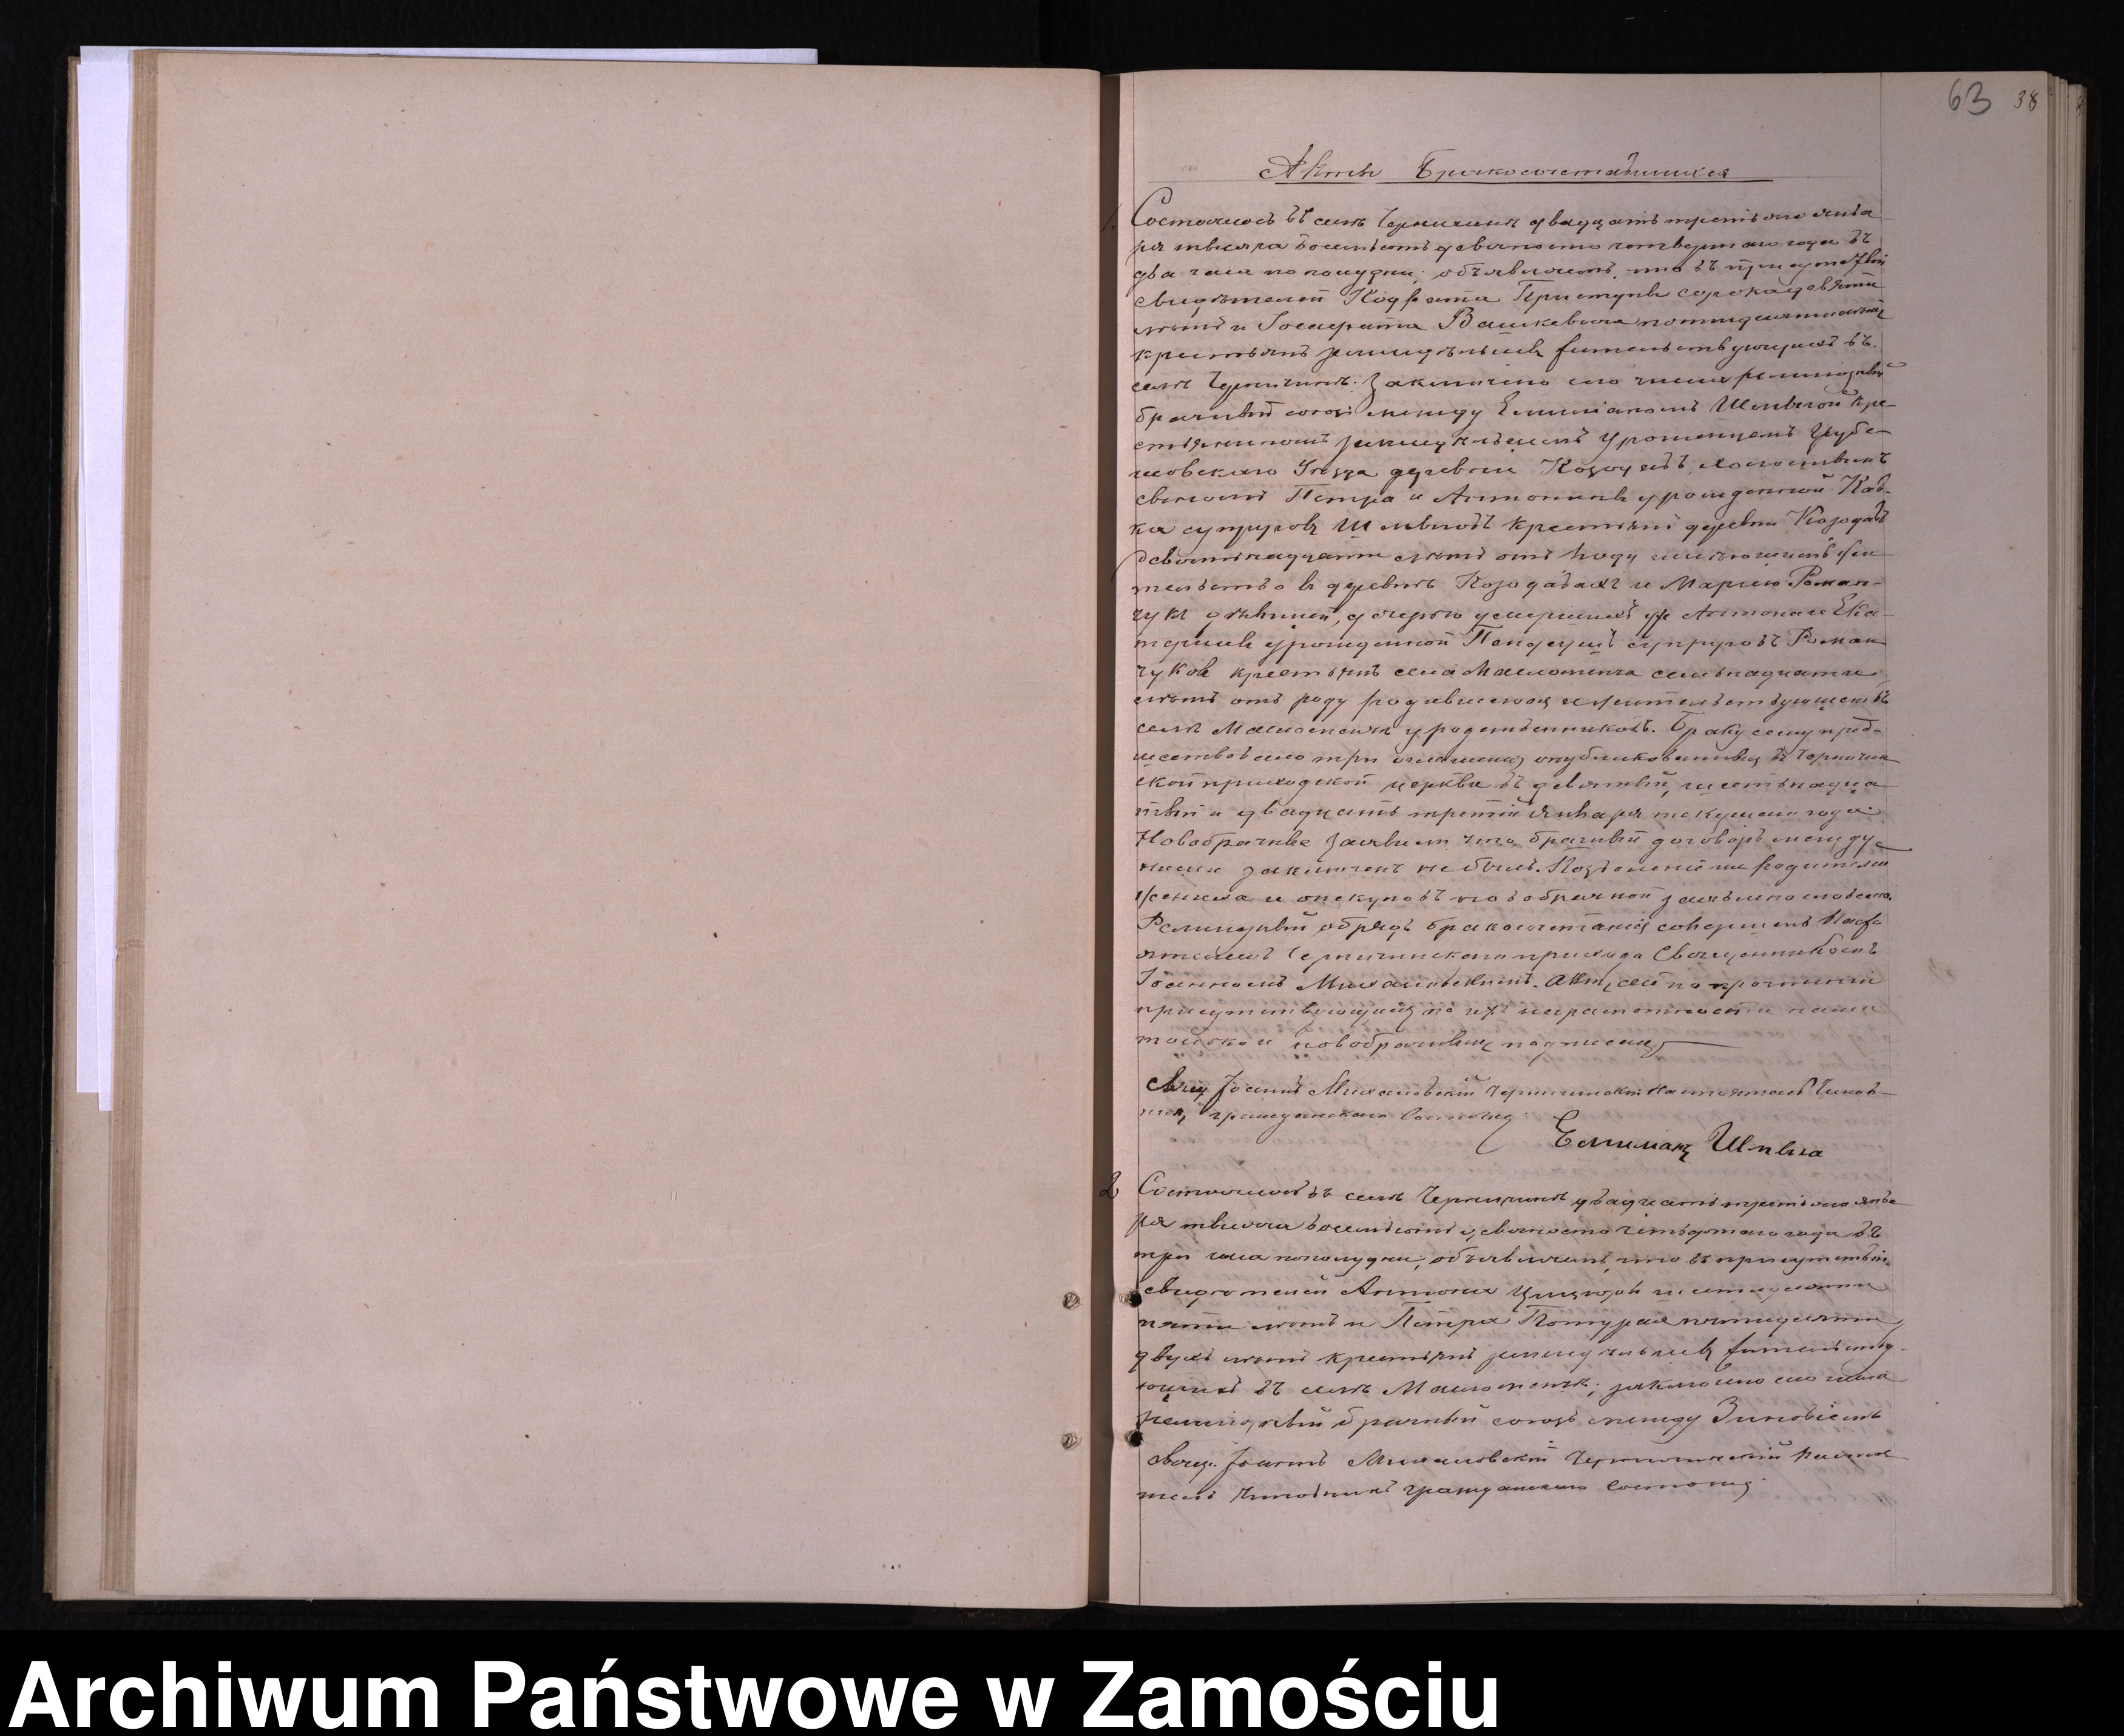 63 38
Акты Бракосочетавшихся
1. Состоялось въ селѣ Черничинѣ двадцать третьяго янва
ря тысяча восемьсотъ девяносто четвертаго года въ
два часа пополудни; объявляемъ, что въ присутствіи
свидѣтелей Кодрата Приступы сорокадевяти
лѣтъ и Іосафата Вашкевича пятидесятилѣтъ
крестьянъ земледѣльцевъ жительствующихъ въ
селѣ Черничинѣ. Заключенъ сего числа религіозный
брачный союзъ между Емиліаномъ Шпыгой кре
стьяниномъ земледѣльцемъ уроженцемъ Грубе
шовскаго Уѣзда деревни Козодавъ, холостымъ
сыномъ Петра и Антонины урожденной Кав
ка супруговъ Шпыговъ крестьянъ деревни Козодавъ
девятнадцати лѣтъ отъ роду имѣющимъ жи
тельство въ деревнѣ Козодавахъ и Марією Роман
чукъ дѣвицей, дочерью умершихъ уже Антона и Ека
терины урожденной супруговъ Роман
чуковъ крестьянъ села Маломенча семьнадцати
лѣтъ отъ роду родившеюся и жительствующею въ
селѣ Маломенчи у родственниковъ. Браку сему пред
шествовало три оглашенія, опубликованныя въ Черничин
ской приходской церкви въ девятый, шестьнадца
тый и двадцать третій Января текущаго года.
Новобрачные заявили что брачный договоръ между
ними заключенъ не былъ. Позволеніе родителей
жениха и опекуновъ новобрачной заявлено словесно.
Религіозный обрядъ бракосочетанія совершенъ Насто
ятелемъ Черничинскаго прихода Священникомъ
Іоанномъ Михаловскимъ. Актъ сей по прочтеніи
присутствующимъ по ихъ неграмотности нами
только и новобрачнымъ подписанъ
Свящ Іоаннъ Михаловскій Черничинскій Настоятель Чинов
никъ гражданскаго Состоянія
Емилианъ Шпыга
2 Состоялось въ селѣ Черничинѣ двадцать третьяго янва
ря тысяча восемьсотъ девяносто четвертаго года въ
три часа пополудни; объявляемъ, что въ присутствіи
свидѣтелей Антона шестидесяти
пяти лѣтъ и Петра Потурая пятидесяти
двухъ лѣтъ крестьянъ земледѣльцевъ жительству
ющихъ въ селѣ Маломенчѣ; заключенъ сего числа
религіозный брачный союзъ между Зиновіемъ
Свящ. Іоаннъ Михаловскій Черничинскій Настоя
тель Чиновникъ гражданскаго Состоянія
Archiwum Państwowe w Zamościu